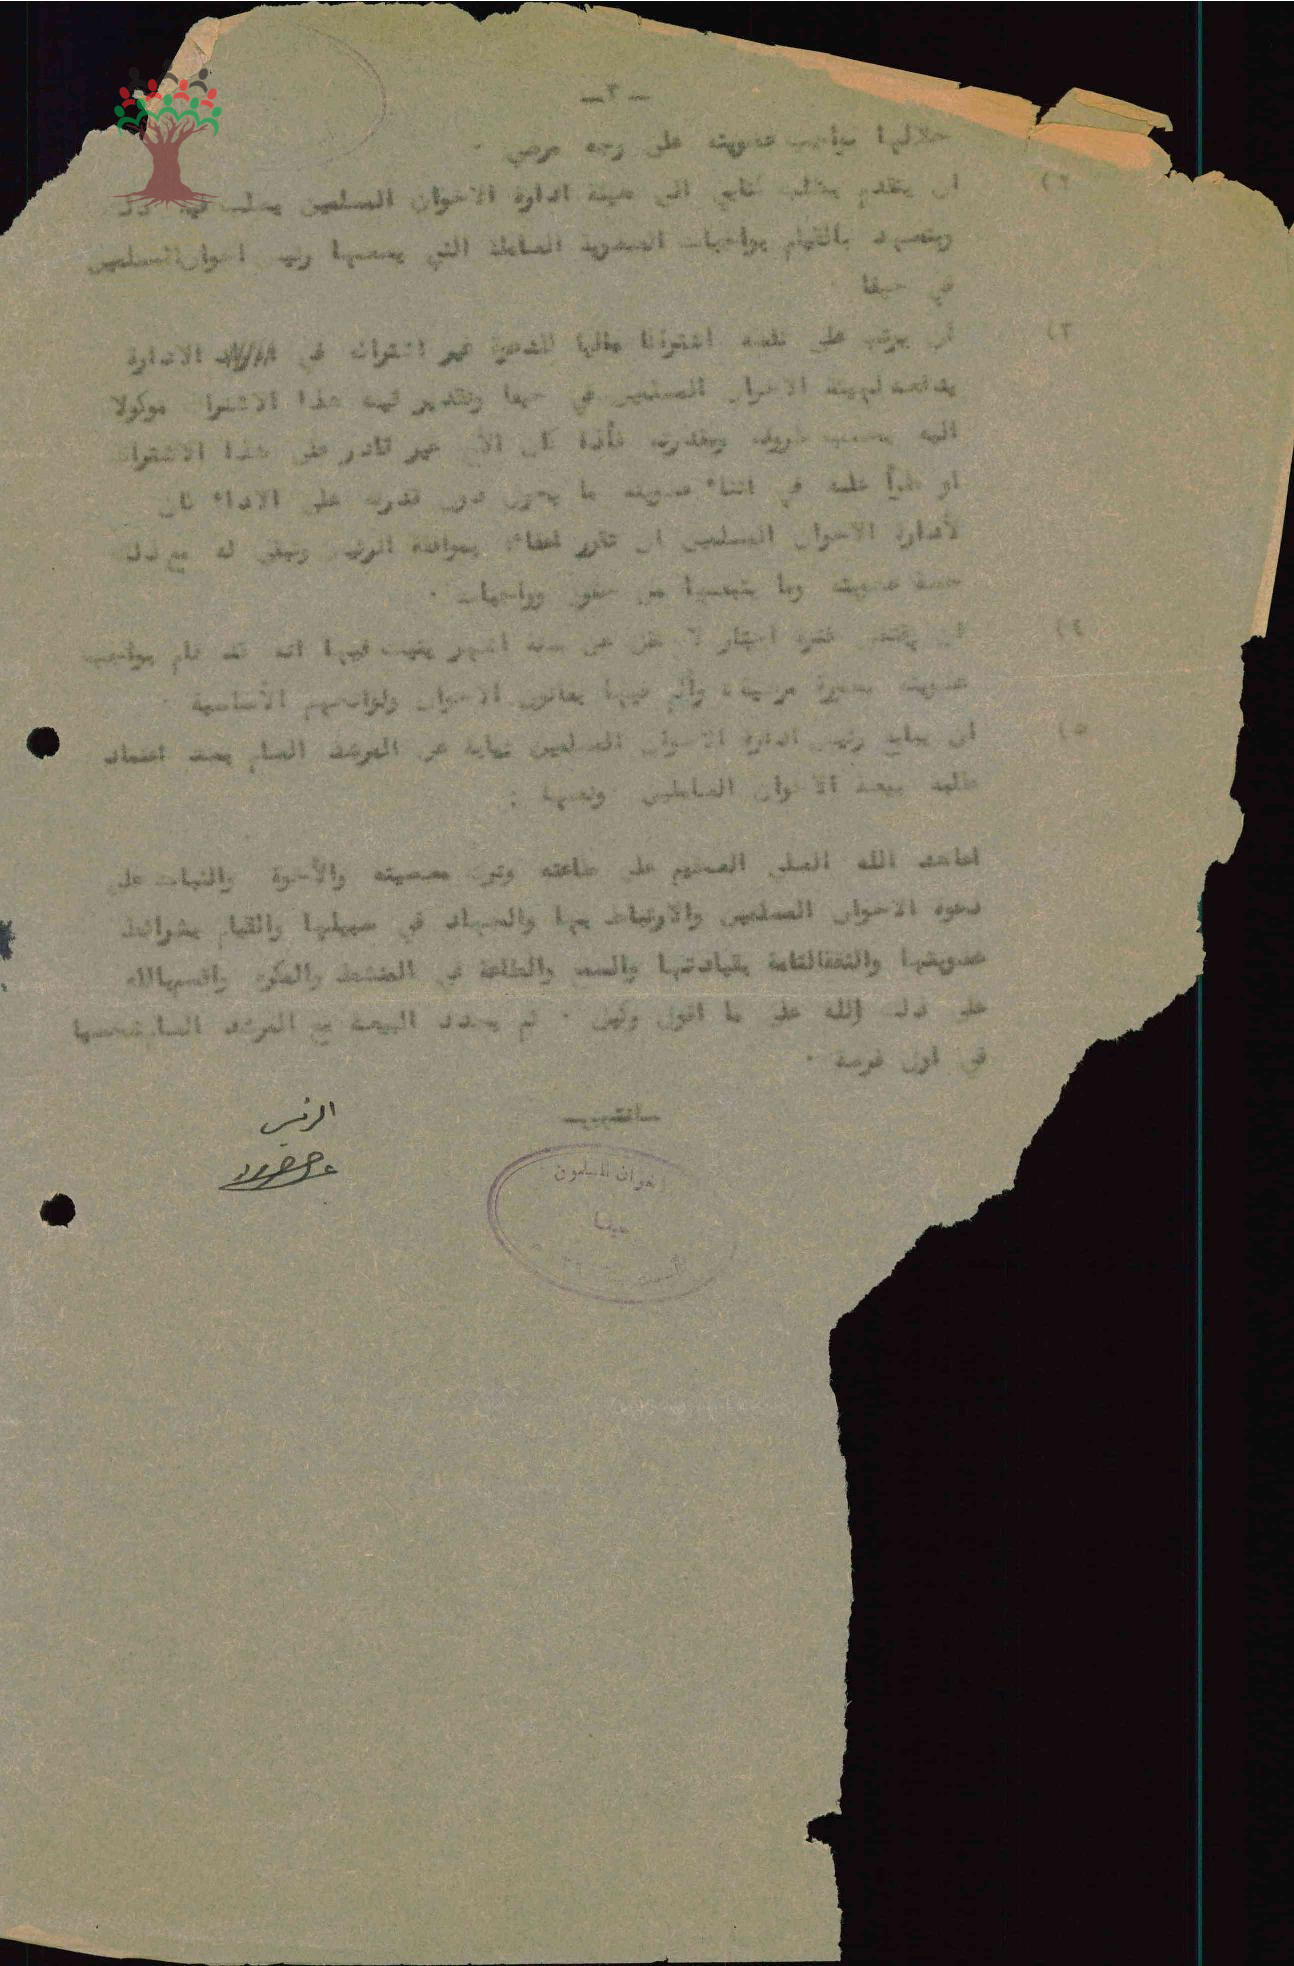 ـ ٣ ـ
خلالها بواجب عضويته على وجه مرضي ٠
٢) ان يتقدم بطلب كتابي الى هيئة ادارة الاخوان المسلمين يطلب فيه ذلك
ويتعهد بالقيام بواجبات العضوية العاملة التي يضعها رئيس اخوان المسلمين
في حيفا
٣) ان يرتب على نفسه اشتراكا ماليا للدعوة غير اشتراك في الادارة
يدفعه لهيئة الاخوان المسلمين في حيفا وتقدير قيمة هذا الاشتراك موكولا
اليه بحسب ظروفه ومقدرته فأذا كان الأخ غير قادر على هذا الاشتراك
او طرأ عليه في اثناء عضويته ما يحول دون قدرته على الاداء كان
لأدارة الاخوان المسلمين ان تقرر اعفاءه بموافقة الرئيس وتبقى له مع ذلك
صفة عضويته وما يتبعها من حقوق وواجبات ٠
٤) ان يقضي فترة اختبار لا تقل عن ستة اشهر يثبت فيها انه قد قام بواجب
عضويته بصورة مرضية وألم فيها بقانون الاخوان ولوائحهم الأساسية
٥) ان يبايع رئيس ادارة الاخوان المسلمين نيابة عن المرشد العام بعد اعتماد
طلبه بيعة الاخوان العاملين ونصها :
اعاهد الله العلي العظيم على طاعته وترك معصيته والأخوة والثبات على
دعوة الاخوان المسلمين والارتباط بها والجهاد في سبيلها والقيام بشرائط
عضويتها والثقةالتامة بقيادتها والسمع والطاعة في المنشط والمكره واقسم بالله
على ذلك والله على ما اقول وكيل ٠ ثم يجدد البيعة مع المرشد العام شخصيا
في اول فرصة ٠
ـ انتهى ـ
الرئيس
اخوان المسلمون
حيفا